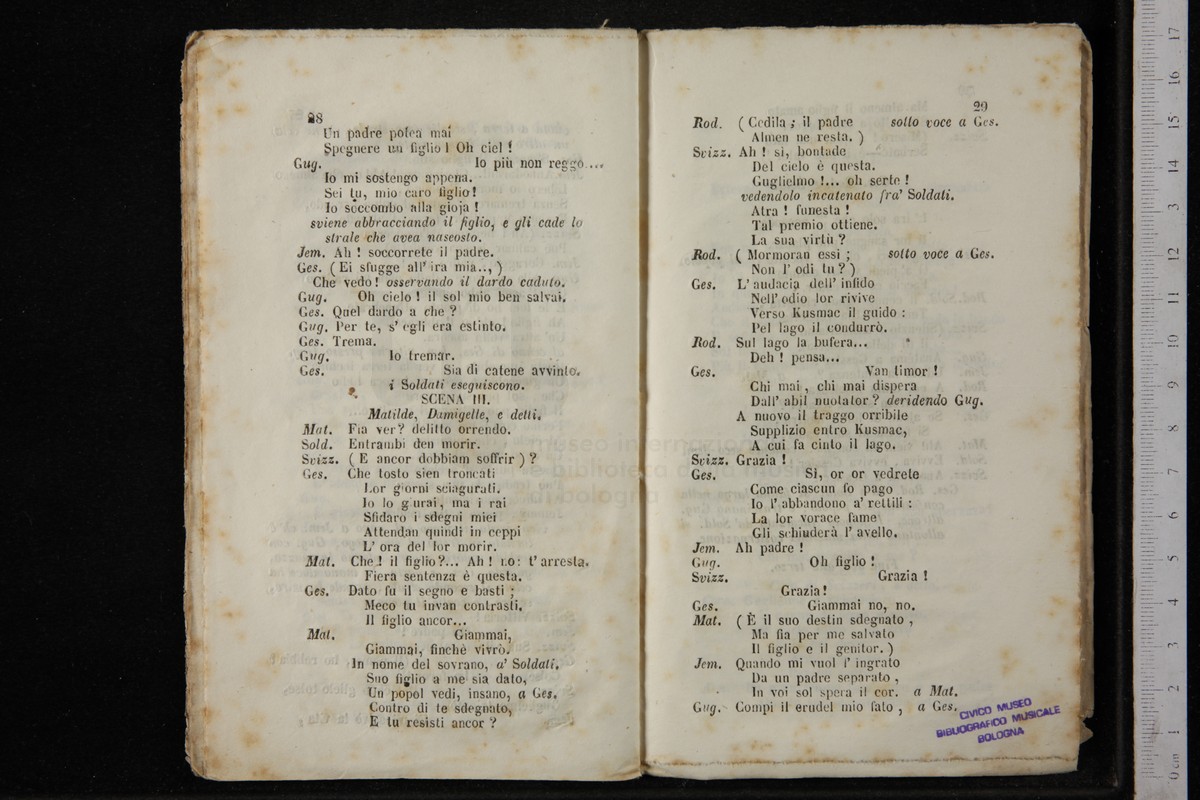 28
Un padre potea mai
Spegnere un figlio ! Oh ciel !
Gug. Io più non reggo....
Io mi sostengo appena.
Sei tu, mio caro figlio !
Io soccombo alla gioja !
sviene abbracciando il figlio, e gli cade lo
strale che avea nascosto.
Jem. Ah ! soccorrete il padre.
Ges. ( Ei sfugge all' ira mia.., )
Che vedo ! osservando il dardo caduto.
Gug. Oh cielo ! il sol mio ben salvai.
Ges. Quel dardo a che ?
Gug. Per te, s' egli era estinto.
Ges. Trema.
Gug. Io tremar.
Ges. Sia di catene avvinto.
i Soldati eseguiscono.
SCENA III.
Matilde, Damigelle, e detti.
Mat. Fia ver? delitto orrendo.
Sold. Entrambi den morir.
Svizz. ( E ancor dobbiam soffrir ) ?
Ges. Che tosto sien troncati
Lor giorni sciagurati.
Io lo giurai, ma i rai
Sfidaro i sdegni miei
Attendan quindi in ceppi
L' ora del lor morir.
Mat. Che ! il figlio?... Ah ! no: t' arresta.
Fiera sentenza è questa.
Ges. Dato fu il segno e basti ;
Meco tu invan contrasti.
Il figlio ancor...
Mat. Giammai,
Giammai, finchè vivrò.
In nome del sovrano, a' Soldati.
Suo figlio a me sia dato,
Un popol vedi, insano, a Ges.
Contro di te sdegnato,
E tu resisti ancor ?
29
Rod. ( Cedila ; il padre sotto voce a Ges.
Almen ne resta. )
Svizz. Ah ! sì, bontade
Del cielo è questa.
Guglielmo !... oh serte !
vedendolo incatenato fra' Soldati.
Atra ! funesta !
Tal premio ottiene.
La sua virtù ?
Rod. ( Mormoran essi ; sotto voce a Ges.
Non l' odi tu ? )
Ges. L' audacia dell' infido
Nell' odio lor rivive
Verso Kusmac il guido :
Pel lago il condurrò.
Rod. Sul lago la bufera...
Deh ! pensa...
Ges. Van timor !
Chi mai, chi mai dispera
Dall' abil nuotator ? deridendo Gug.
A nuovo il traggo orribile
Supplizio entro Kusmac,
A cui fa cinto il lago.
Svizz. Grazia !
Ges. Sì, or or vedrete
Come ciascun fo pago
Io l' abbandono a' rettili :
La lor vorace fame
Gli schiuderà l' avello.
Jem. Ah padre !
Gug. Oh figlio !
Svizz. Grazia !
Grazia !
Ges. Giammai no, no.
Mat. ( È il suo destin sdegnato ,
Ma fia per me salvato
Il figlio e il genitor. )
Jem. Quando mi vuol l' ingrato
Da un padre separato ,
In voi sol spera il cor. a Mat.
Gug. Compi il crudel mio fato , a Ges.
CIVICO MUSEO
BIBLIOGRAFICO MUSICALE
BOLOGNA